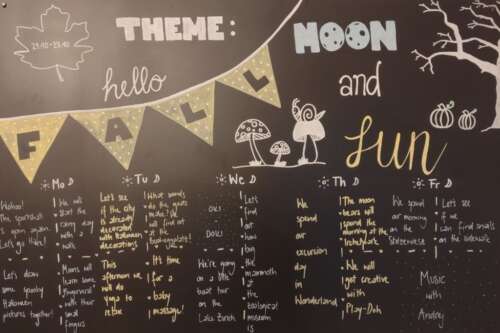 THEME: MOON
and
Sun
hello
FALL
Mo
Tu
We
Th
Fr
Wohoo!
The
is
open again.
Let's
We will
start the
rainy day
with a
walk
Let's draw
some
spooky
Halloween
pictures
together
will
learn how
to
with their
small
fingers
Let's see
if the city
is already
decorated
with Halloween
decorations
This
afternoon we
will do
yoga to
relax
What sounds
do the goats
make?
find out
at the
It's time
for a
baby
massage
We're going
on a little
boat tour
on the
Lake Zurich
Let's
find
out
how
the
mammoth
at the
zoological
museum
is
We
spend
our
excursion
day
in
Wonderland
The moon
bears will
spend the
morning at the
Letzipark
We will
get creative
with
Play-Doh
We spend
our morning
on the
Let's see
if we
can find snails
on the sidewalk
Music
with
Andrey